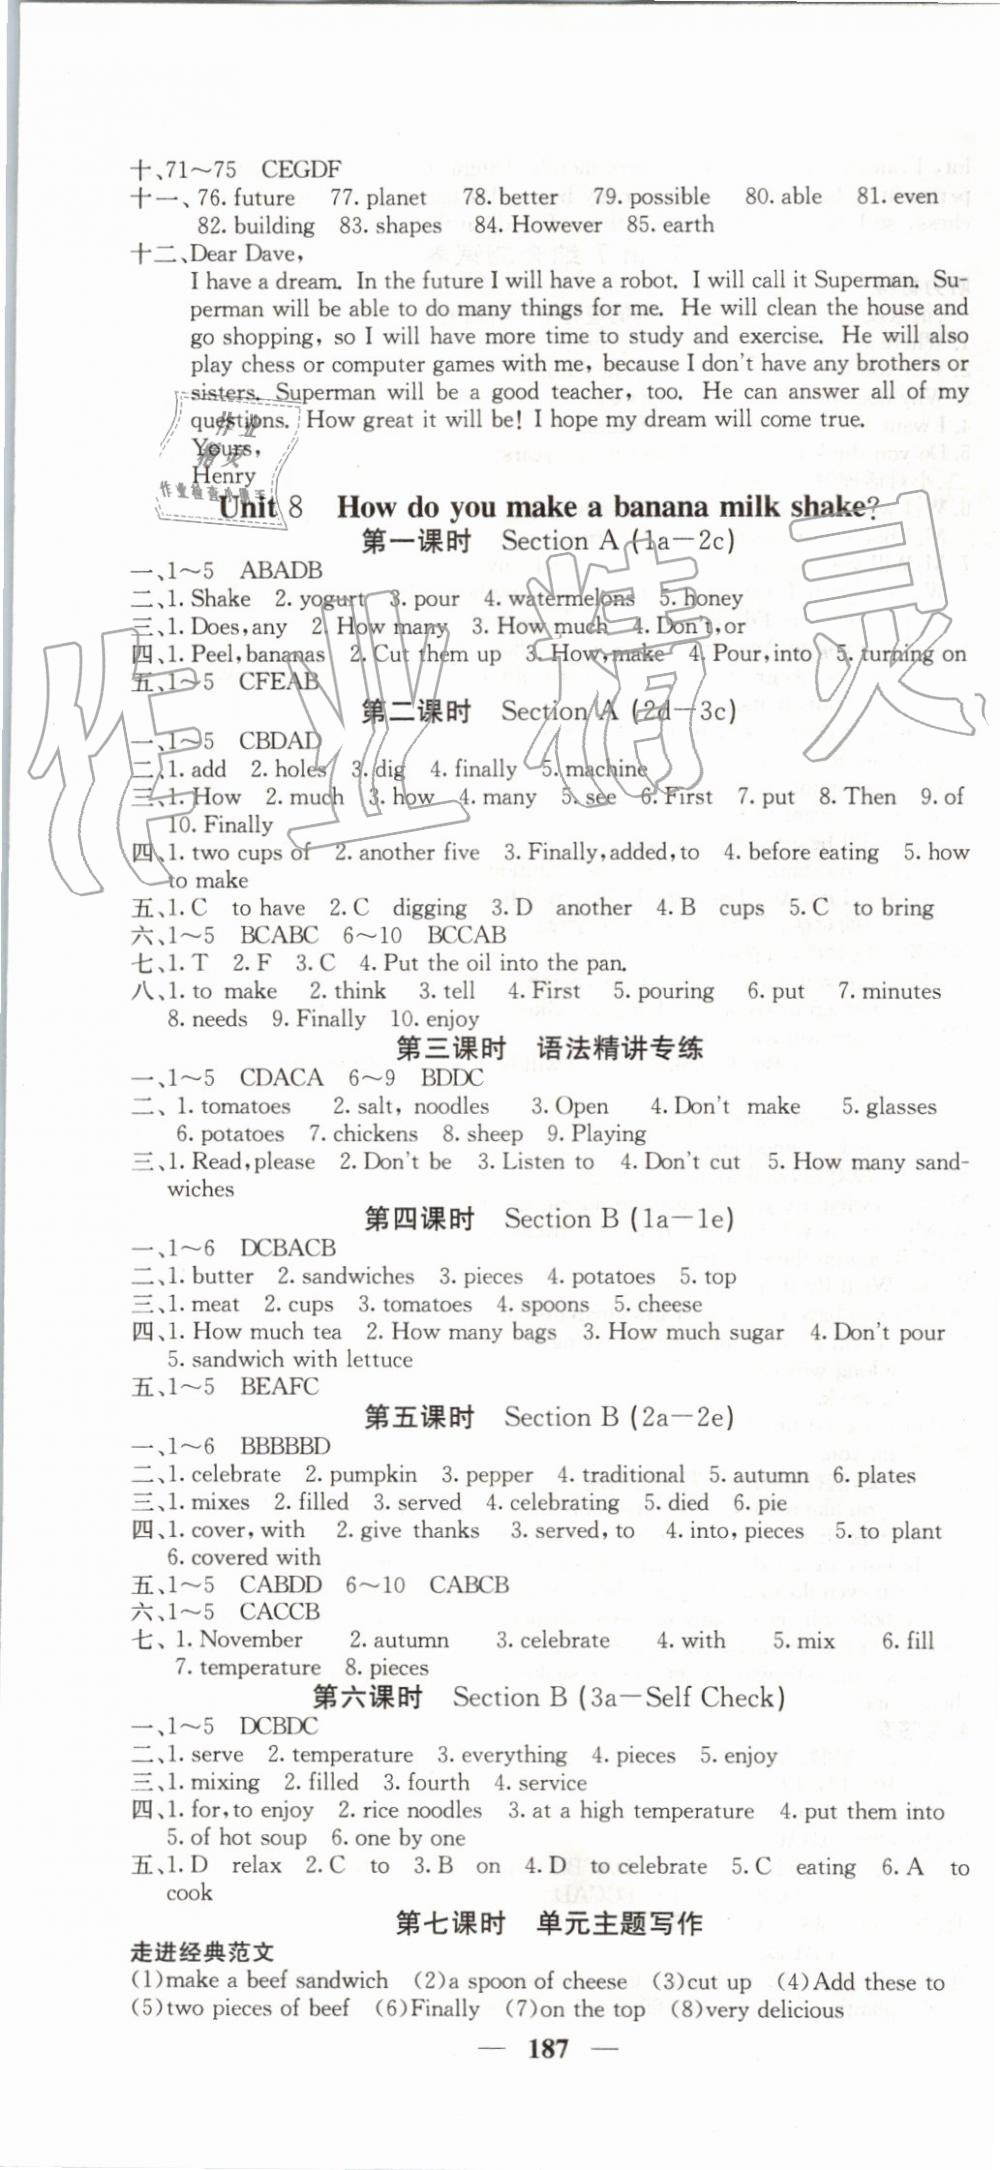 十、71～75 CEGDF
十一、76. future 77. planet 78. better 79. possible 80. able 81. even
82. building 83. shapes 84. However 85. earth
十二、Dear Dave,
I have a dream. In the future I will have a robot. I will call it Superman. Su-
perman will be able to do many things for me. He will clean the house and
go shopping, so I will have more time to study and exercise. He will also
play chess or computer games with me, because I don't have any brothers or
sisters. Superman will be a good teacher, too. He can answer all of my
questions. How great it will be! I hope my dream will come true.
Yours,
Henry
作业
精灵
作业检查小助手
Unit 8 How do you make a banana milk shake?
第一课时 Section A (1a－2c)
一、1～5 ABADB
二、1. Shake 2. yogurt 3. pour 4. watermelons 5. honey
三、1. Does, any 2. How many 3. How much 4. Don't, or
四、1. Peel, bananas 2. Cut them up 3. How, make 4. Pour, into 5. turning on
五、1～5 CFEAB
第二课时 Section A (2d－3c)
一、1～5 CBDAD
二、1. add 2. holes 3. dig 4. finally 5. machine
三、1. How 2. much 3. how 4. many 5. see 6. First 7. put 8. Then 9. of
10. Finally
四、1. two cups of 2. another five 3. Finally, added, to 4. before eating 5. how
to make
五、1. C to have 2. C digging 3. D another 4. B cups 5. C to bring
六、1～5 BCABC 6～10 BCCAB
七、1. T 2. F 3. C 4. Put the oil into the pan.
八、1. to make 2. think 3. tell 4. First 5. pouring 6. put 7. minutes
8. needs 9. Finally 10. enjoy
第三课时 语法精讲专练
一、1～5 CDACA 6～9 BDDC
二、1. tomatoes 2. salt, noodles 3. Open 4. Don't make 5. glasses
6. potatoes 7. chickens 8. sheep 9. Playing
三、1. Read, please 2. Don't be 3. Listen to 4. Don't cut 5. How many sand-
wiches
第四课时 Section B (1a－1e)
一、1～6 DCBACB
二、1. butter 2. sandwiches 3. pieces 4. potatoes 5. top
三、1. meat 2. cups 3. tomatoes 4. spoons 5. cheese
四、1. How much tea 2. How many bags 3. How much sugar 4. Don't pour
5. sandwich with lettuce
五、1～5 BEAFC
第五课时 Section B (2a－2e)
一、1～6 BBBBBD
二、1. celebrate 2. pumpkin 3. pepper 4. traditional 5. autumn 6. plates
三、1. mixes 2. filled 3. served 4. celebrating 5. died 6. pie
四、1. cover, with 2. give thanks 3. served, to 4. into, pieces 5. to plant
6. covered with
五、1～5 CABDD 6～10 CABCB
六、1～5 CACCB
七、1. November 2. autumn 3. celebrate 4. with 5. mix 6. fill
7. temperature 8. pieces
第六课时 Section B (3a－Self Check)
一、1～5 DCBDC
二、1. serve 2. temperature 3. everything 4. pieces 5. enjoy
三、1. mixing 2. filled 3. fourth 4. service
四、1. for, to enjoy 2. rice noodles 3. at a high temperature 4. put them into
5. of hot soup 6. one by one
五、1. D relax 2. C to 3. B on 4. D to celebrate 5. C eating 6. A to
cook
第七课时 单元主题写作
走进经典范文
(1)make a beef sandwich (2)a spoon of cheese (3)cut up (4)Add these to
(5)two pieces of beef (6)Finally (7)on the top (8)very delicious
— 187 —
作业精灵